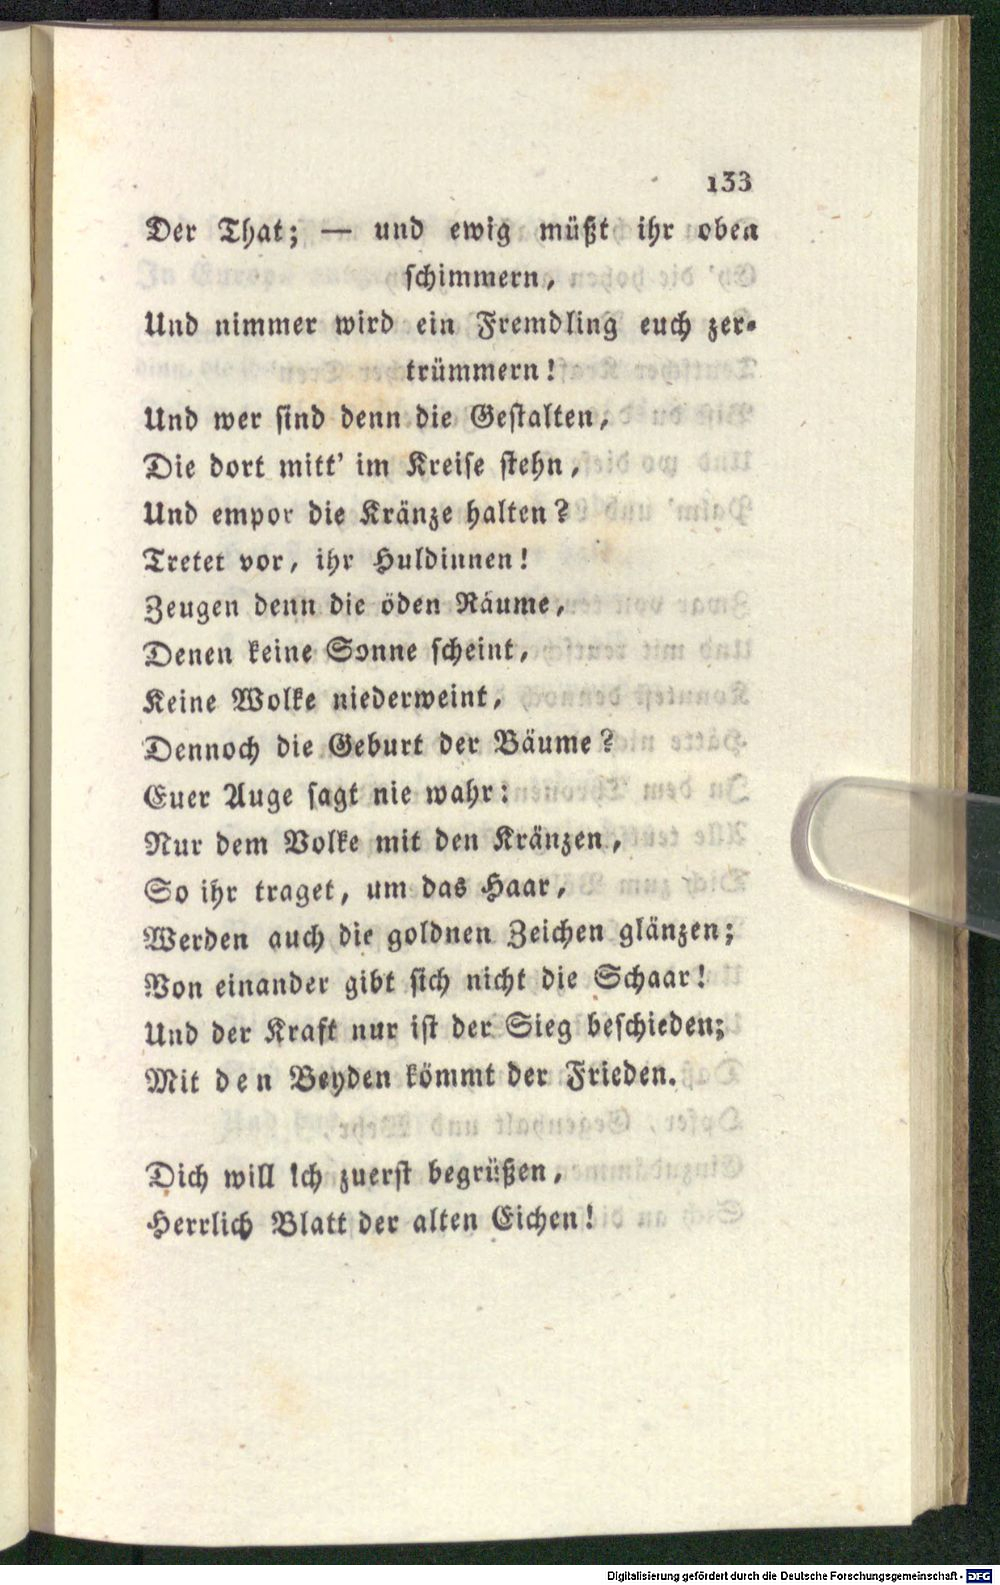 133
Der That; — und ewig müßt ihr oben
schimmern,
Und nimmer wird ein Fremdling euch zer-
trümmern!
Und wer sind denn die Gestalten,
Die dort mitt' im Kreise stehn,
Und empor die Kränze halten?
Tretet vor, ihr Huldinnen!
Zeugen denn die öden Räume,
Denen keine Sonne scheint,
Keine Wolke niederweint,
Dennoch die Geburt der Bäume?
Euer Auge sagt nie wahr:
Nur dem Volke mit den Kränzen,
So ihr traget, um das Haar,
Werden auch die goldnen Zeichen glänzen;
Von einander gibt sich nicht die Schaar!
Und der Kraft nur ist der Sieg beschieden;
Mit den Beyden kömmt der Frieden.
Dich will ich zuerst begrüßen,
Herrlich Blatt der alten Eichen!
Digitalisierung gefördert durch die Deutsche Forschungsgemeinschaft - DFG